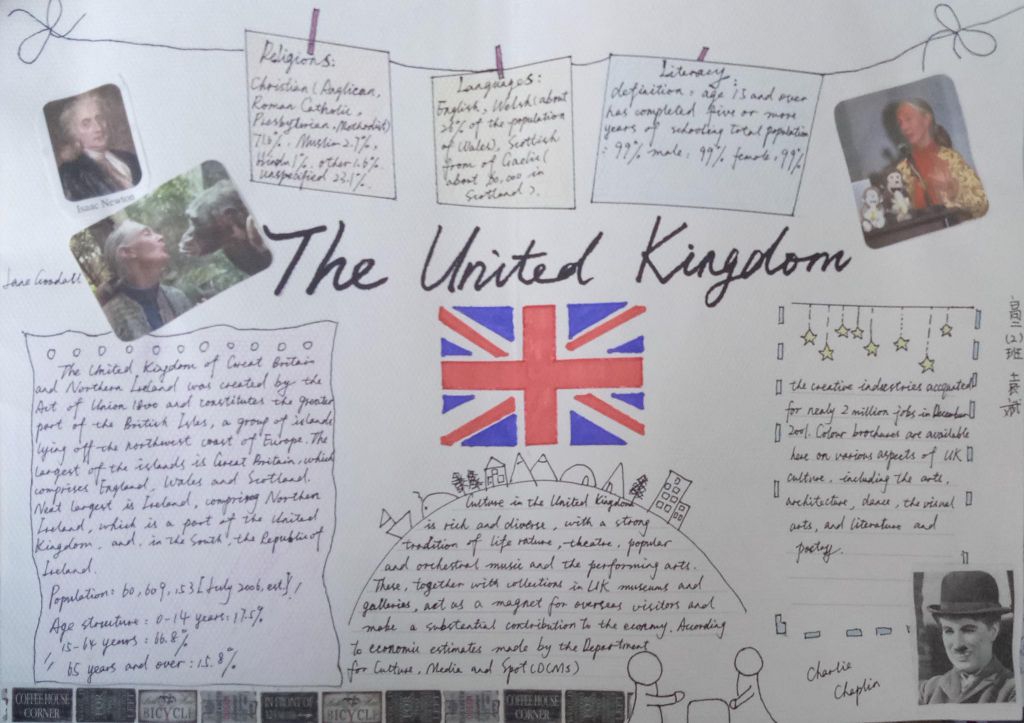 Religions:
Christian (Anglican,
Roman Catholic,
Presbyterian, Methodist)
71.6%. Muslim 2.7%,
Hindu 1%, other 1.6%.
unspecified 23.1%.
Languages:
English, Welsh (about
26% of the population
of Wales), Scottish
from of Gaelic (
about 60,000 in
Scotland).
Literacy:
definition: age 15 and over
has completed five or more
years of schooling total population
: 99% male: 99% female: 99%
Isaac Newton
Jane Goodall
The United Kingdom
The United Kingdom of Great Britain
and Northern Ireland was created by the
Act of Union 1800 and constitutes the greater
part of the British Isles, a group of islands
lying off the northwest coast of Europe. The
largest of the islands is Great Britain, which
comprises England, Wales and Scotland.
Next largest is Ireland, comprising Northern
Ireland, which is a part of the United
Kingdom, and, in the South, the Republic of
Ireland.
Population: 60,609,153 [July 2006, est.]
Age structure: 0-14 years: 17.5%
15-64 years: 66.8%
65 years and over: 15.8%
Culture in the United Kingdom
is rich and diverse, with a strong
tradition of life rature, theatre, popular
and orchestral music and the performing arts.
These, together with collections in UK museums and
galleries, act as a magnet for overseas visitors and
make a substantial contribution to the economy. According
to economic estimates made by the Department
for Culture, Media and Spot (DCMS)
the creative industries accounted
for nearly 2 million jobs in December
2001. Colour brochures are available
here on various aspects of UK
culture, including the arts,
architecture, dance, the visual
arts, and literature and
poetry.
高二(2)班
Charlie
Chaplin
COFFEE HOUSE
CORNER
BICYCLE
IN FRONT OF
BICYCLE
COFFEE HOUSE
CORNER